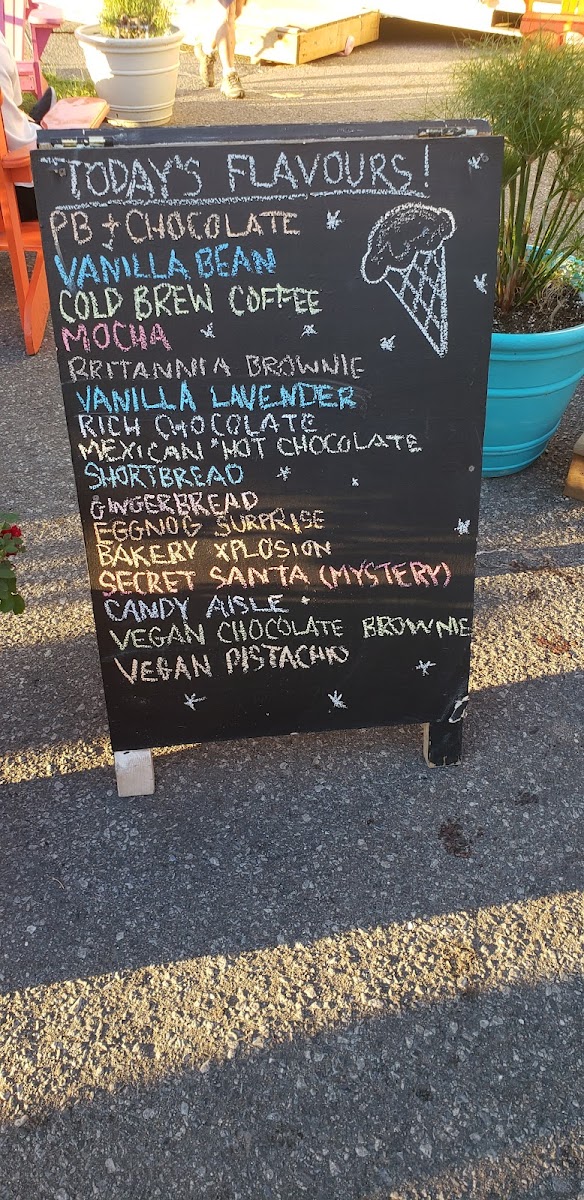 TODAY'S FLAVOURS!
PB + CHOCOLATE
VANILLA BEAN
COLD BREW COFFEE
MOCHA
BRITANNIA BROWNIE
VANILLA LAVENDER
RICH CHOCOLATE
MEXICAN "HOT CHOCOLATE
SHORTBREAD
GINGERBREAD
EGGNOG SURPRISE
BAKERY XPLOSION
SECRET SANTA (MYSTERY)
CANDY AISLE
VEGAN CHOCOLATE BROWNIE
VEGAN PISTACHIO